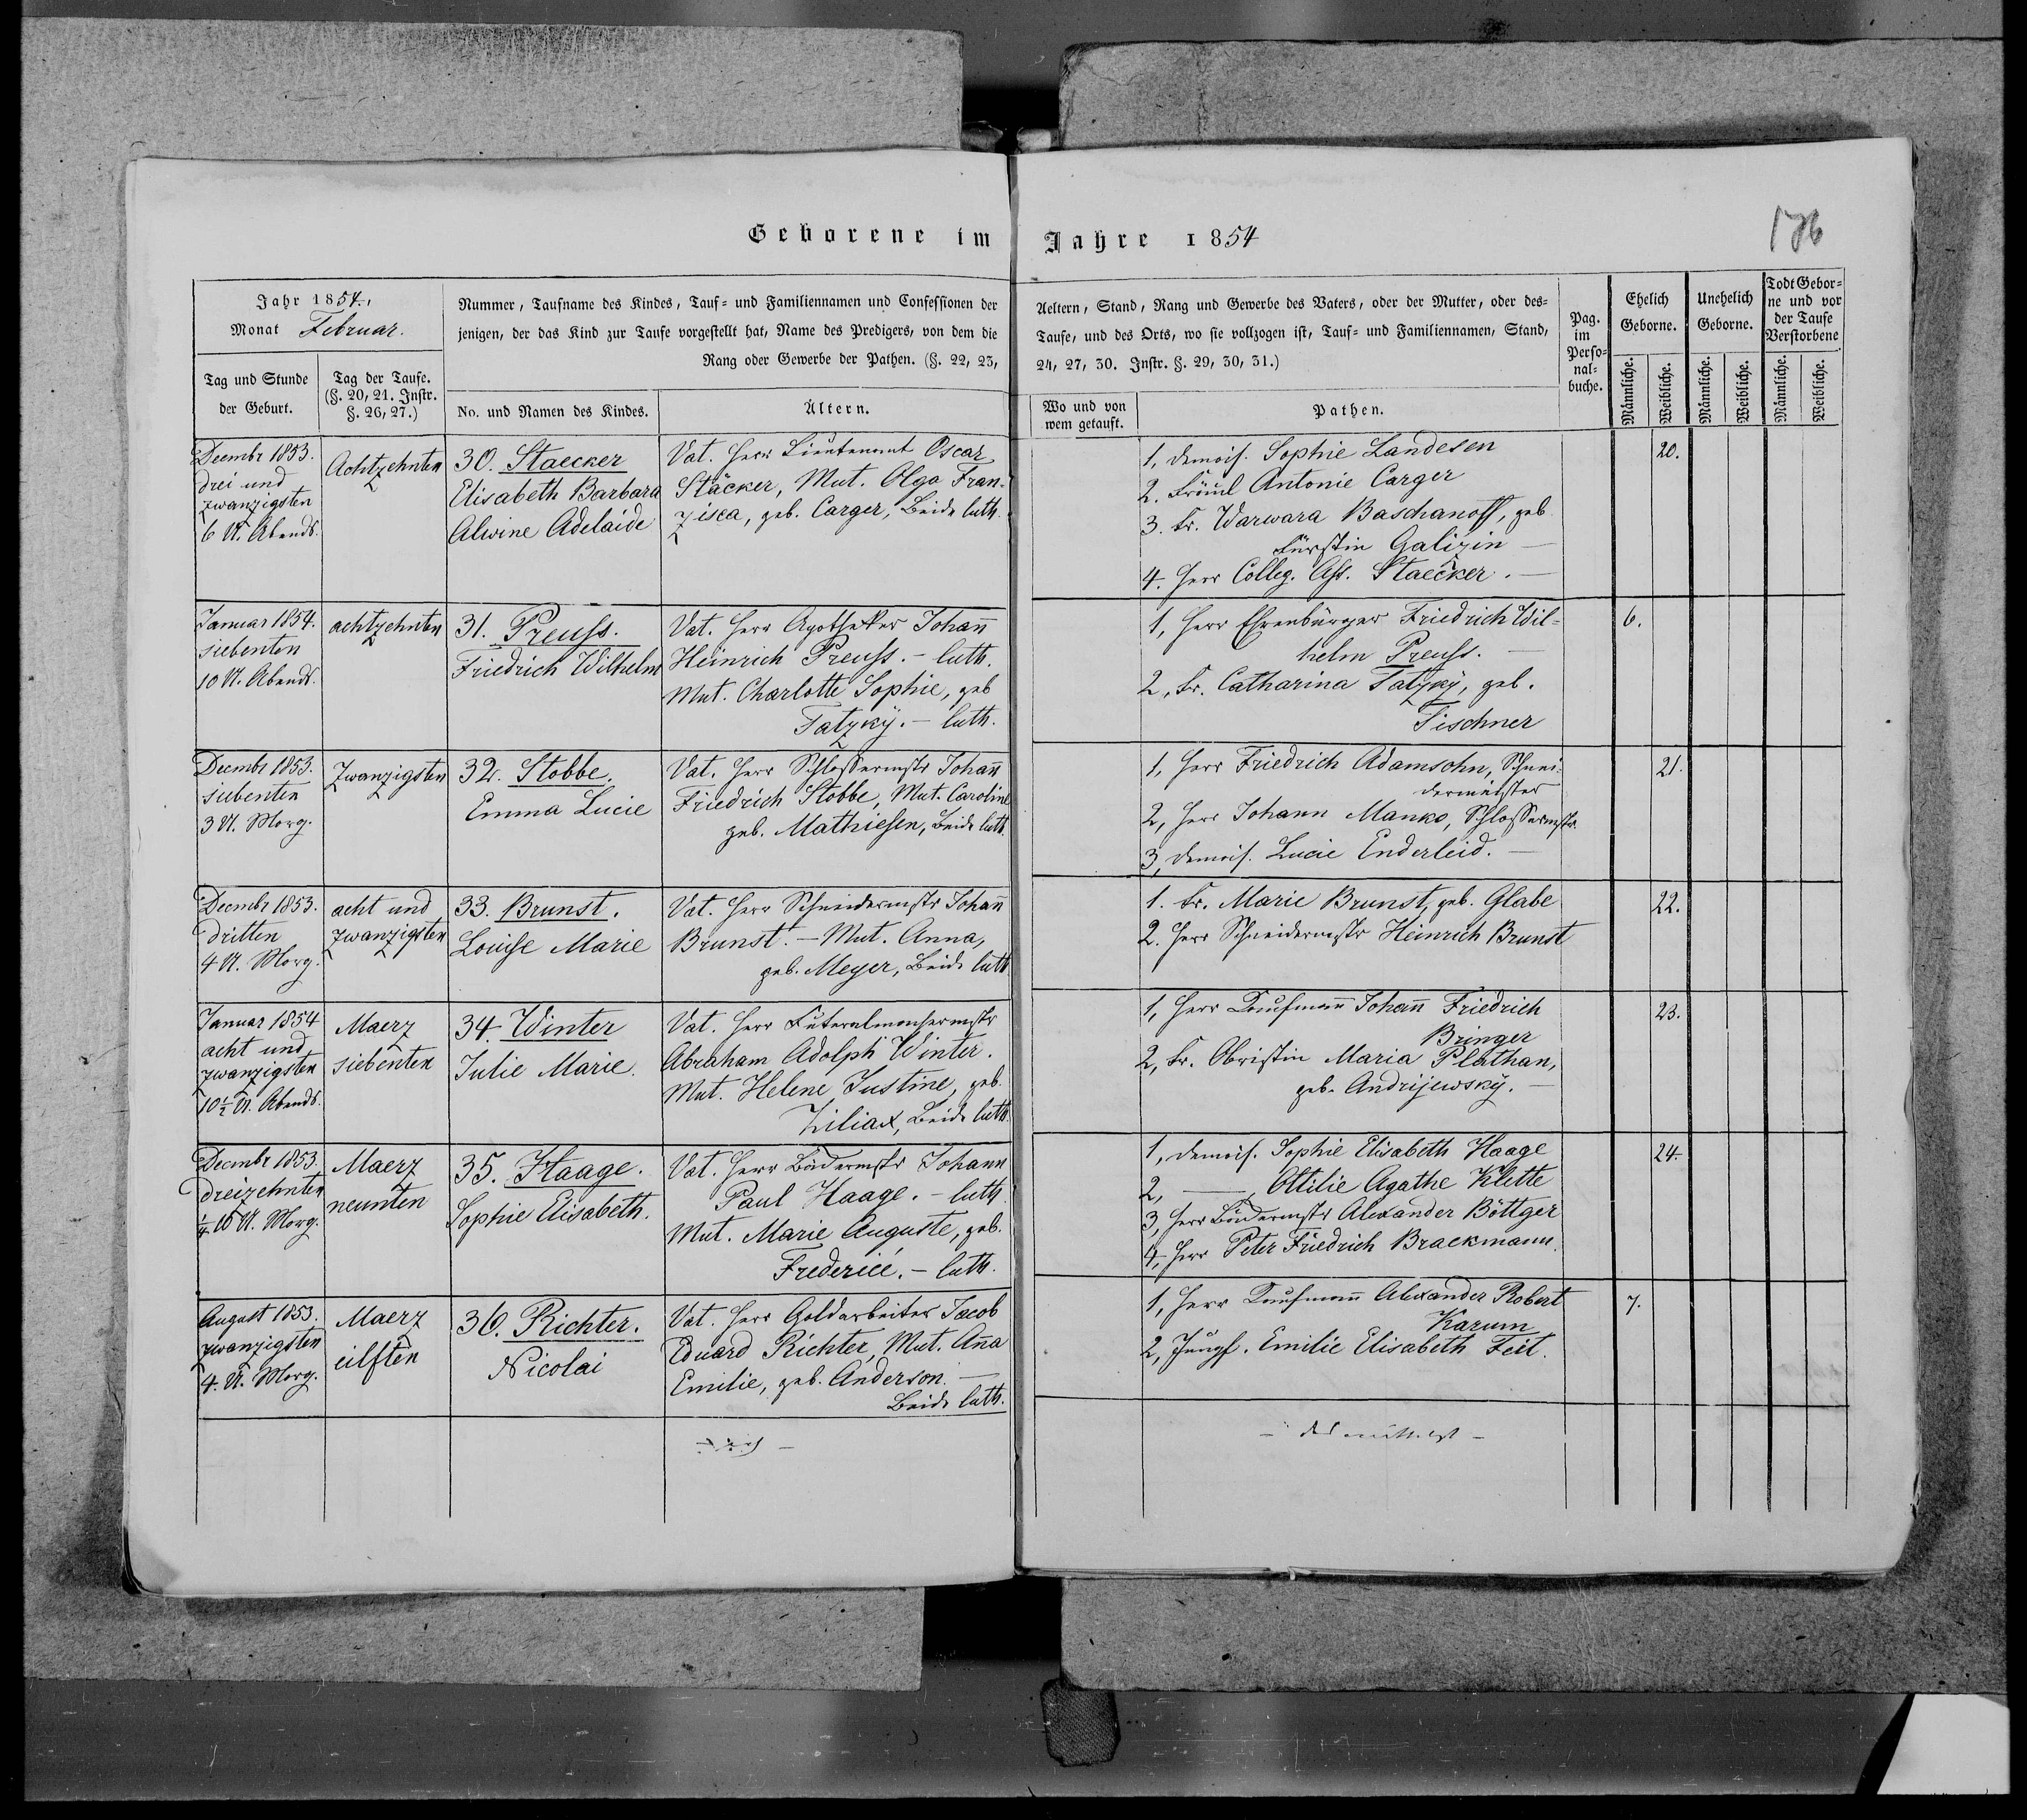 Geborene im Jahre 1854
176
Jahr 1854.,
Monat Februar.
Nummer, Taufname des Kindes, Tauf- und Familiennamen und Confessionen der Aeltern, Stand, Rang und Gewerbe des Vaters, oder der Mutter, oder des-
jenigen, der das Kind zur Taufe vorgestellt hat, Name des Predigers, von dem die Taufe, und des Orts, wo sie vollzogen ist, Tauf- und Familiennamen, Stand,
Rang oder Gewerbe der Pathen. (§. 22, 23, 24, 27, 30. Instr. §. 29, 30, 31.)
Pag.
im
Perso-
nal-
buche.
Ehelich
Geborne.
Unehelich
Geborne.
Todt Gebor-
ne und vor
der Taufe
Verstorbene
Männliche.
Weibliche.
Männliche.
Weibliche.
Männliche.
Weibliche.
Tag und Stunde
der Geburt.
Tag der Taufe.
(§. 20, 21. Instr.
§. 26, 27.)
No. und Namen des Kindes.
Ältern.
Wo und von
wem getauft.
Pathen.
Decmbr 1853.
drei und
zwanzigsten
6 U. Abends.
Achtzehnten
30. Staecker
Elisabeth Barbara
Alwine Adelaide
Vat. Herr Lieutenant Oscar
Stäcker, Mut. Olga Fran-
zisca, geb. Carger, Beide luth.
1, Demois. Sophie Landesen
2. Fräul Antonie Carger
3. Fr. Warwara Baschanoff, geb
Fürstin Galizin —
4. Herr Colleg. Ass. Staecker. —
20.
Januar 1854.
siebenten
10 U. Abends.
achtzehnten
31. Preuss.
Friedrich Wilhelm
Vat. Herr Apotheker Johañ
Heinrich Preuss. – luth.
Mut. Charlotte Sophie, geb
Tatzky. – luth.
1, Herr Ehrenbürger Friedrich Wil-
helm Preuss. —
2, Fr. Catharina Tatzky, geb.
Tischner
6.
Decmbr 1853.
siebenten
3 U. Morg.
Zwanzigsten
32. Stobbe.
Emma Lucie
Vat. Herr Schlossermstr Johañ
Friedrich Stobbe, Mut. Caroline
geb. Mathiesen, Beide luth.
1, Herr Friedrich Adamsohn, Schnei-
dermeister
2, Herr Johann Manko, Schlossermstr.
3, Demois. Lucie Enderleid. —
21.
Decmbr 1853.
dritten
4 U. Morg.
acht und
zwanzigsten
33. Brunst.
Louise Marie
Vat. Herr Schneidermstr Johañ
Brunst. – Mut. Anna,
geb. Meyer, Beide luth
1. Fr. Marie Brunst, geb. Glabe
2. Herr Schneidermstr Heinrich Brunst
22.
Januar 1854
acht und
zwanzigsten
10½ U. Abends.
Maerz
siebenten
34. Winter
Julie Marie.
Vat. Herr Futeralmachermstr
Abraham Adolph Winter.
Mut. Helene Justine, geb.
Ziliax, Beide luth.
1, Herr Kaufmañ Johañ Friedrich
Bringer
2, Fr. Obristin Maria Plathan,
geb. Andrijewsky. —
23.
Decmbr 1853.
dreizehnten
¼ 10 U. Morg.
Maerz
neunten
35. Haage.
Sophie Elisabeth.
Vat. Herr Bäckermstr Johann
Paul Haage. – luth.
Mut. Marie Auguste, geb.
Frederici. – luth.
1, Demois. Sophie Elisabeth Haage
2, — Ottilie Agathe Klette
3, Herr Bäckermstr Alexander Böttger
4, Herr Peter Friedrich Brackmann.
24.
August 1853.
zwanzigsten
4. U. Morg.
Maerz
eilften
36. Richter.
Nicolai
Vat. Herr Goldarbeiter Jacob
Eduard Richter, Mut. Aña
Emilie, geb. Anderson. —
Beide luth.
1, Herr Kaufmañ Alexander Robert
Karum
2, Jungf. Emilie Elisabeth Feit.
7.